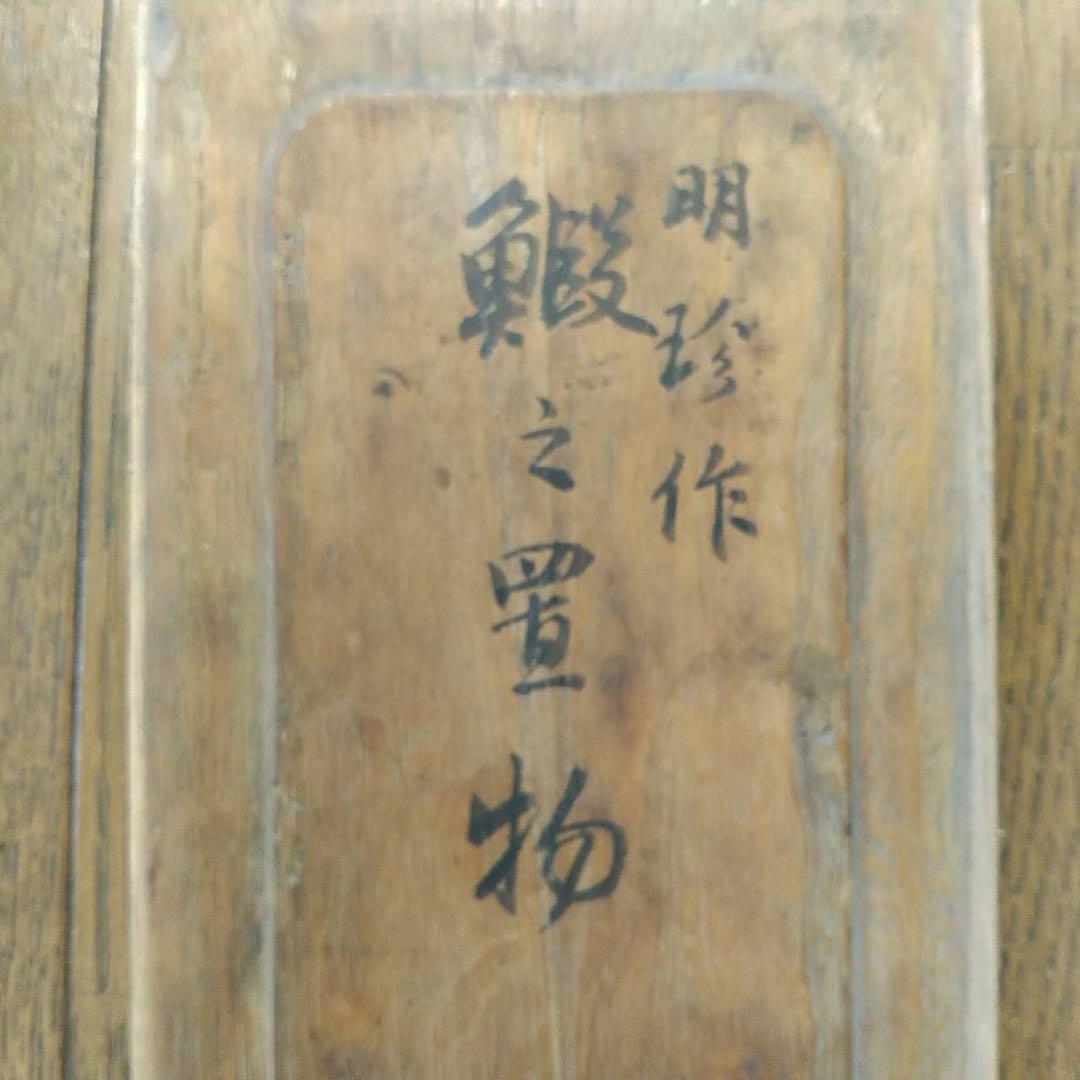 明珍作
鰕之置物